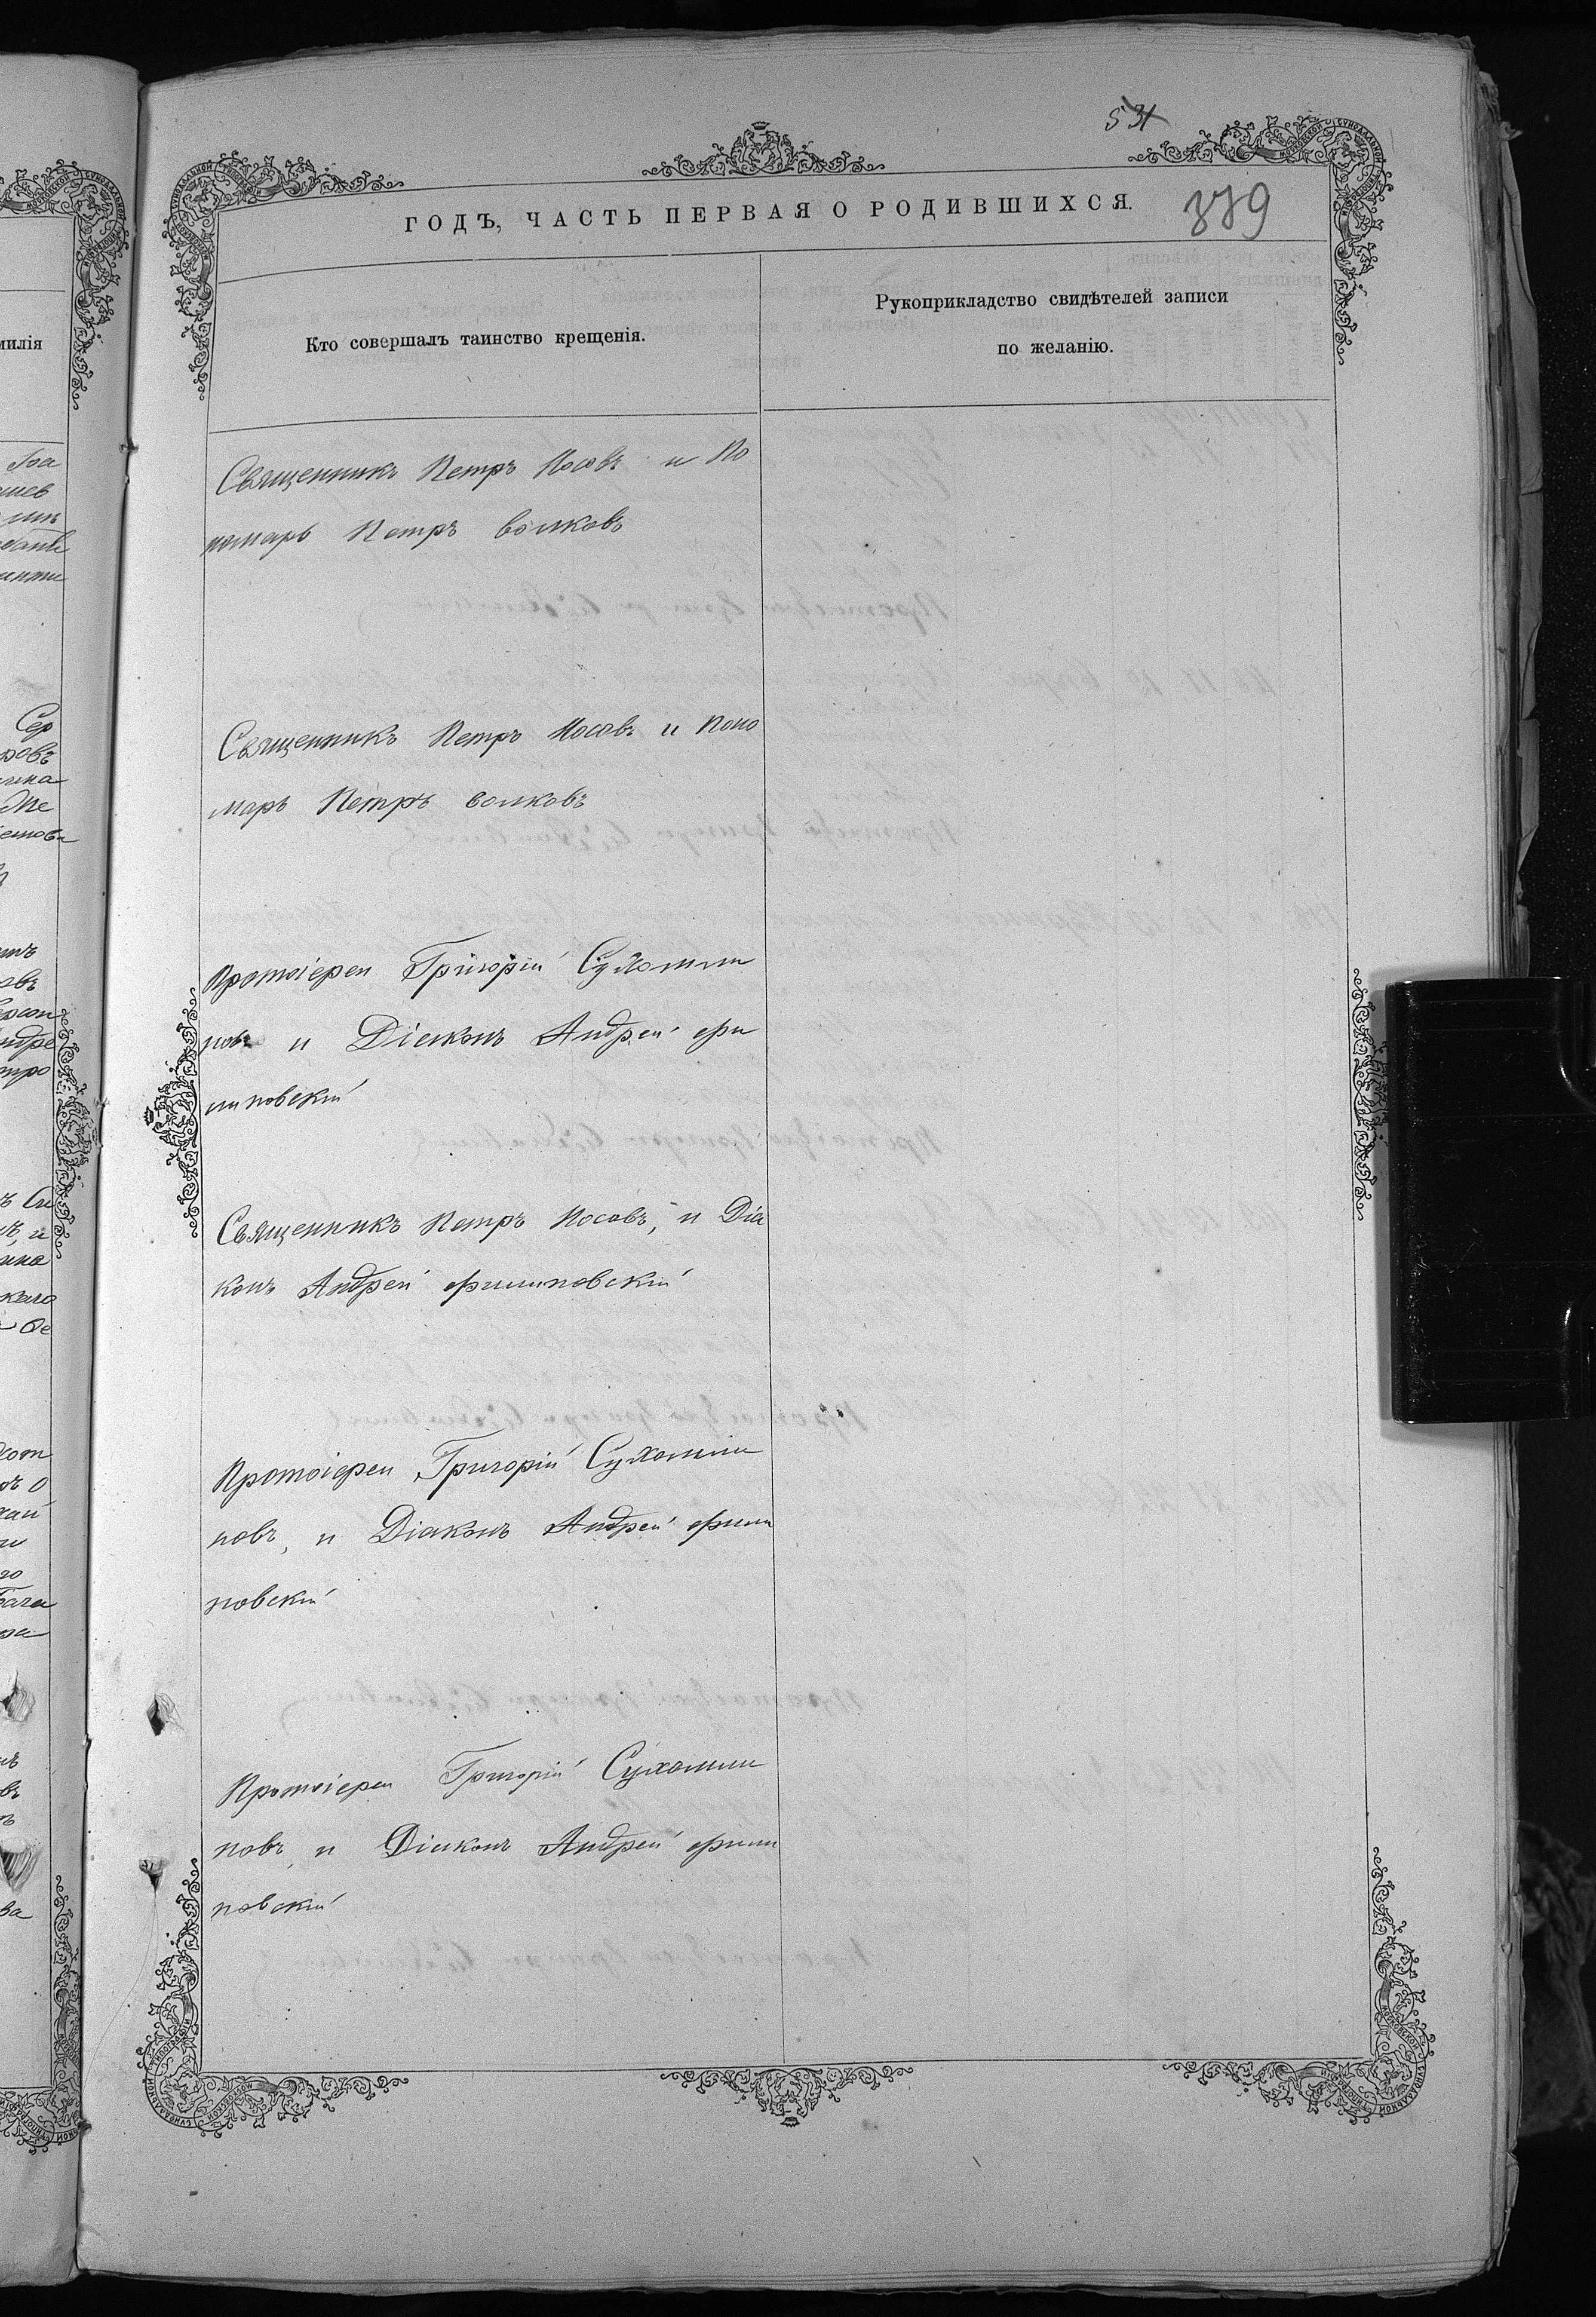 531
339
ГОДЪ, ЧАСТЬ ПЕРВАЯ О РОДИВШИХСЯ.
Кто совершалъ таинство крещенія.
Рукоприкладство свидѣтелей записи
по желанію.
милія
Священникъ Петръ Носовъ и По
номарь Петръ волковъ
Священникъ Петръ Носовъ и Поно
марь Петръ волковъ
Протоіереи Григорій Сухомли
новъ и Діаконъ Андрей фи
липовскій
Священникъ Петръ Носовъ, и Діа
конъ Андрей филиповскій
Протоіереи Григорій Сухомли
новъ, и Діаконъ Андрей фили
повскій
Протоіереи Григорій Сухомли
новъ, и Діаконъ Андрей фили
повскій